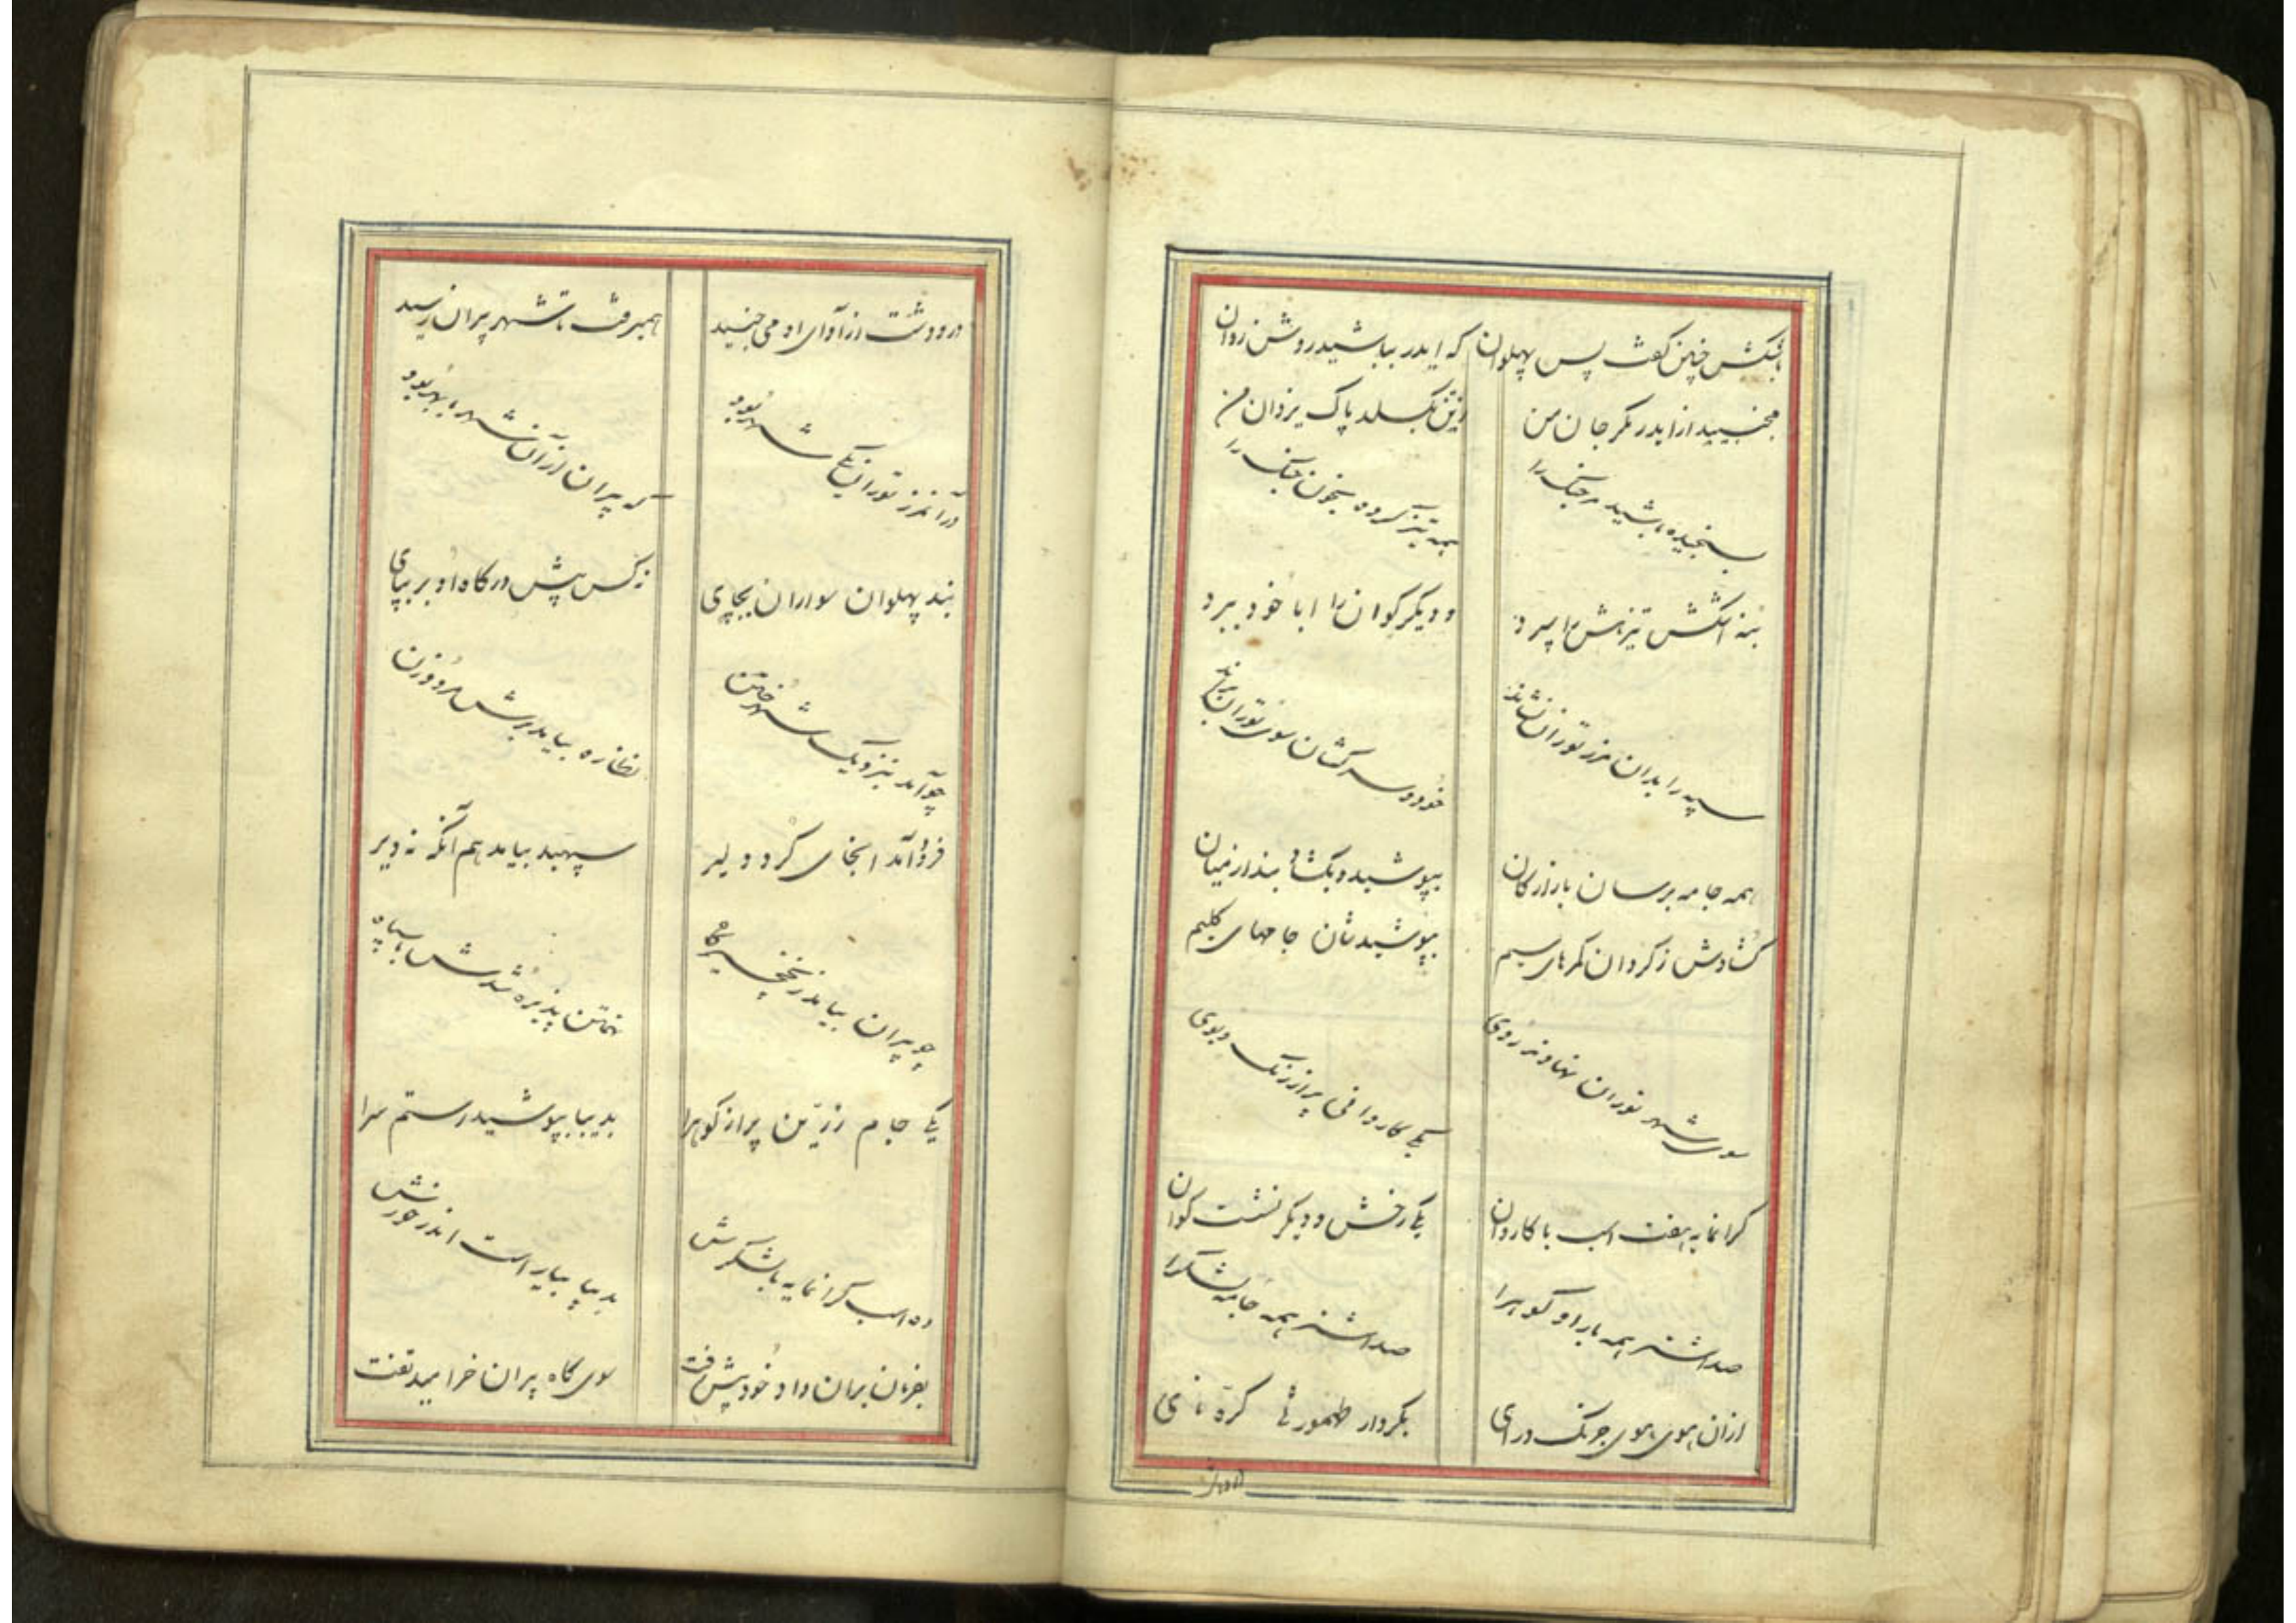 بلشکر چنین گفت پس پهلوان که ایدر بباشید روشن روان
مجنبید از ایدر مگر جان من ز تن بگسلد پاک یزدان من
بسیجیده باشید مر جنگ را همه تیز کرده بخون چنگ را
بنه لشکرش تیزهش را سپرد و دیگر گوان را ابا خود ببرد
سپه را بدان مرز توران نشاند خود و سرکشان سوی توران براند
همه جامه برسان بازارگان بپوشید و بگشاد بند از میان
گشادش ز گردان کمرهای سیم بپوشیدشان جامهای گلیم
سوی شهر توران نهادند روی یکی کاروانی پر از رنگ و بوی
گرانمایه هفت اسب با کاروان یکی رخش و دیگر نشست گوان
صد اشتر همه بار او گوهرا صد اشتر همه جامه لشکرا
ازان هوی هوی جرنگ درای بکردار طهمورثی کره نای
در و دشت از آوای او می جنبید همیرفت تا شهر پیران رسید
در آنمرز توران یکی شهر بود که پیران ازان شهر با بهر بود
نبد پهلوان سواران بجای نه کس پیش درگاه او بر بپای
چو آمد بنزدیک شهر ختن نظاره بیامد برش مرد و زن
فرود آمد انجای گرد دلیر سپهبد بیامد هم آنگه نه دیر
چو پیران بیامد ز نخچیرگاه تهمتن پذیره شدش با سپاه
یکی جام زرین پر از گوهرا بدیبا بپوشید رستم سرا
ده اسب گرانمایه با شکرش بدیبا بیاراست اندر خورش
بفرمان بران داد و خود پیش رفت سوی گاه پیران خرامید تفت